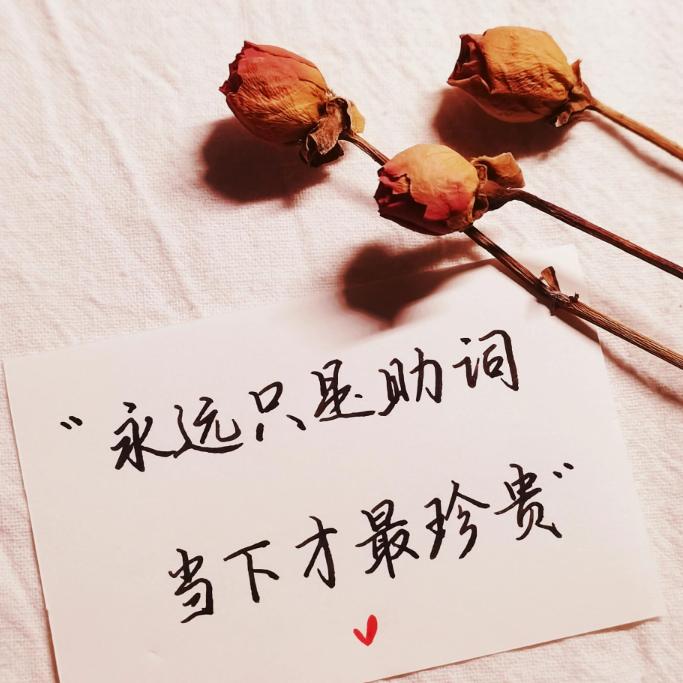 “永远只是助词
当下才最珍贵”